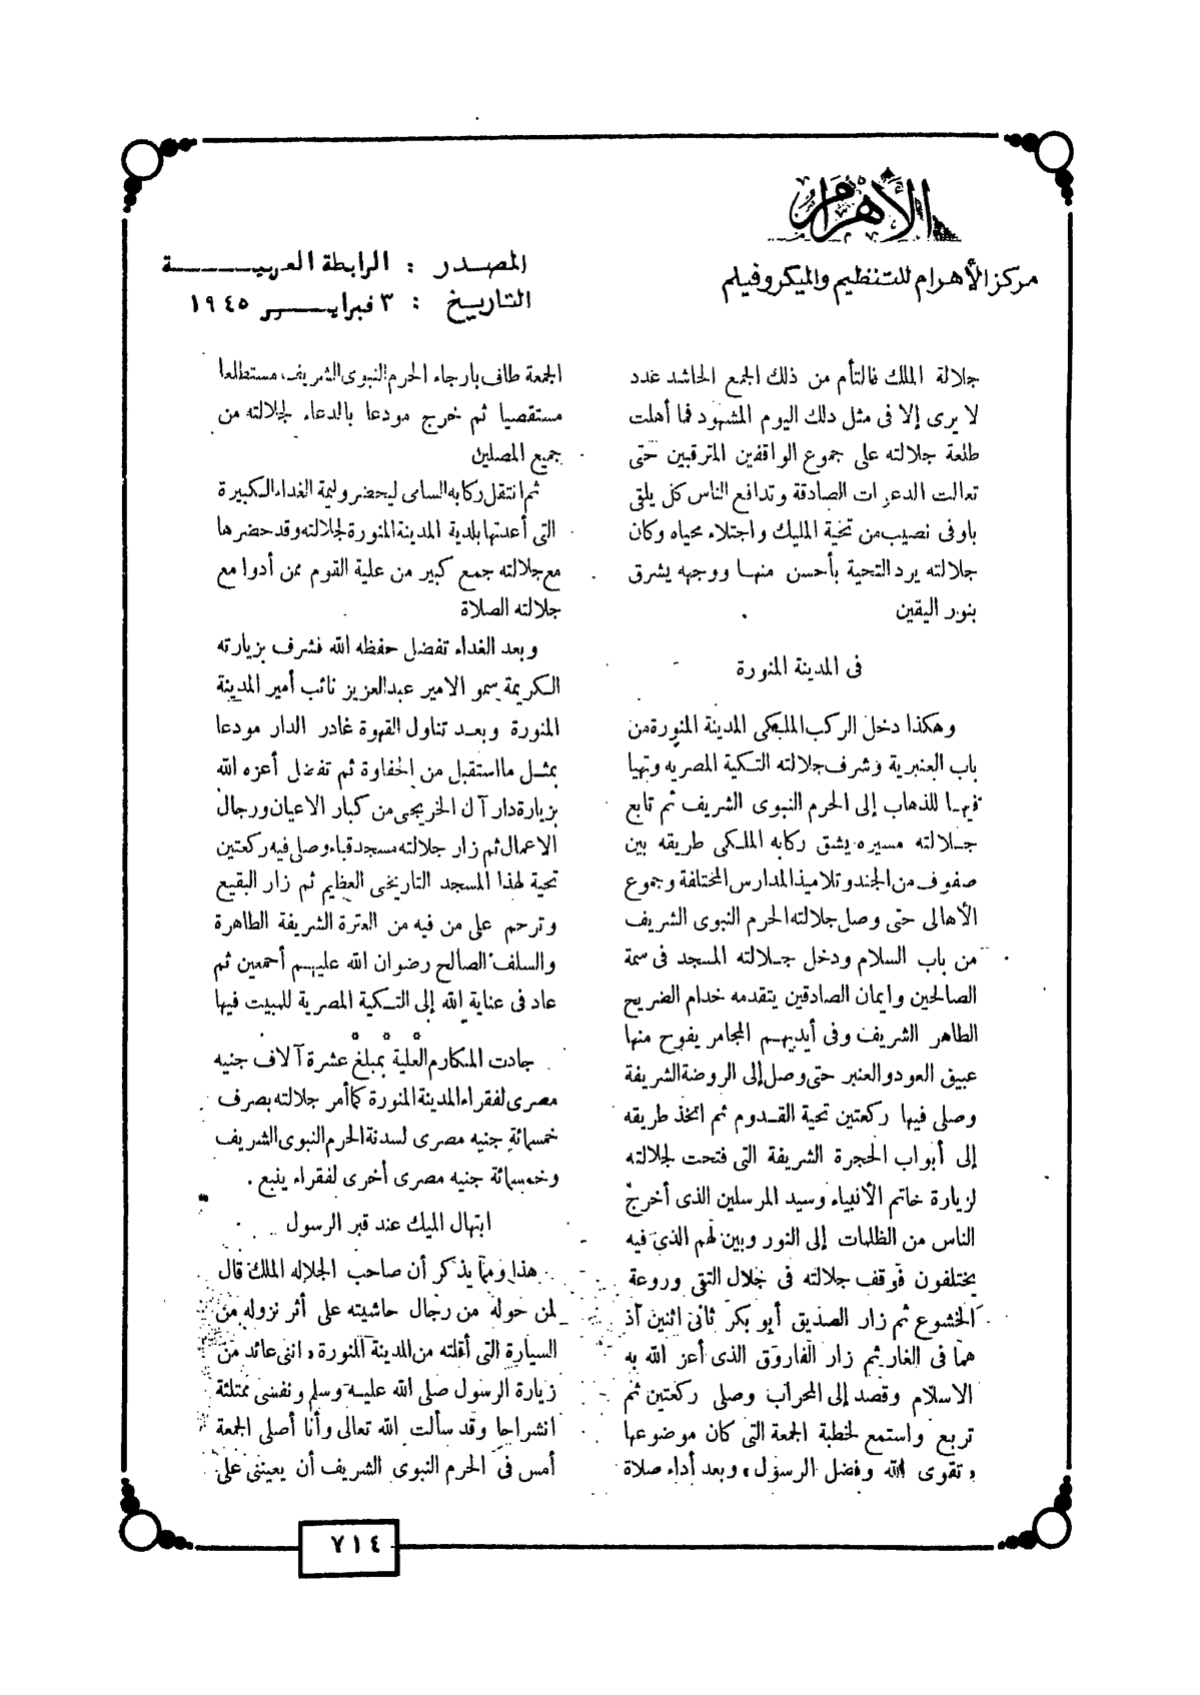 الأهرام
مركز الأهرام للتنظيم والميكروفيلم
المصدر : الرابطة العربيــة
التاريخ : ٣ فبرايــر ١٩٤٥
جلالة الملك فالتأم من ذلك الجمع الحاشد عدد
لا يرى إلا فى مثل ذلك اليوم المشهود فما أهلت
طلعة جلالته على جموع الواقفين المترقبين حتى
تعالت الدعوات الصادقة وتدافع الناس كل يلقى
باوفى نصيب من تحية المليك واجتلاء محياه وكان
جلالته يرد التحية بأحسن منها ووجهه يشرق
بنور اليقين
فى المدينة المنورة
وهكذا دخل الركب الملكى المدينة المنورة من
باب العنبرية وشرف جلالته التكية المصريه وتهيا
فيها للذهاب إلى الحرم النبوى الشريف ثم تابع
جلالته مسيره يشق ركابه الملكى طريقه بين
صفوف من الجند وتلاميذ المدارس المختلفة وجموع
الأهالى حتى وصل جلالته الحرم النبوى الشريف
من باب السلام ودخل جلالته المسجد فى سمة
الصالحين وايمان الصادقين يتقدمه خدام الضريح
الطاهر الشريف وفى أيديهم المجامر يفوح منها
عبيق العود والعنبر حتى وصل إلى الروضة الشريفة
وصلى فيها ركعتين تحية القدوم ثم اتخذ طريقه
إلى أبواب الحجرة الشريفة التى فتحت لجلالته
لزيارة خاتم الأنبياء وسيد المرسلين الذى أخرج
الناس من الظلمات إلى النور وبين لهم الذى فيه
يختلفون فوقف جلالته فى جلال التقى وروعة
الخشوع ثم زار الصديق أبو بكر ثانى اثنين اذ
هما فى الغار ثم زار الفاروق الذى أعز الله به
الاسلام وقصد إلى المحراب وصلى ركعتين ثم
تربع واستمع لخطبة الجمعة التى كان موضوعها
« تقوى الله وفضل الرسول » وبعد أداء صلاة
الجمعة طاف بارجاء الحرم النبوى الشريف مستطلعا
مستقصيا ثم خرج مودعا بالدعاء لجلالته من
جميع المصلين
ثم انتقل ركابه السامى ليحضر وليمة الغداء الكبيرة
التى أعدتها بلدية المدينة المنورة لجلالته وقد حضرها
مع جلالته جمع كبير من علية القوم ممن أدوا مع
جلالته الصلاة
وبعد الغداء تفضل حفظه الله فشرف بزيارته
الكريمة سمو الامير عبدالعزيز نائب أمير المدينة
المنورة وبعد تناول القهوة غادر الدار مودعا
بمثل ما استقبل من الحفاوة ثم تفضل أعزه الله
بزيارة دار آل الخريجى من كبار الاعيان ورجال
الاعمال ثم زار جلالته مسجد قباء وصلى فيه ركعتين
تحية لهذا المسجد التاريخى العظيم ثم زار البقيع
وترحم على من فيه من العترة الشريفة الطاهرة
والسلف الصالح رضوان الله عليهم أجمعين ثم
عاد فى عناية الله إلى التكية المصرية للمبيت فيها
جادت المكارم العلية بمبلغ عشرة آلاف جنيه
مصرى لفقراء المدينة المنورة كما أمر جلالته بصرف
خمسمائة جنيه مصرى لسدنة الحرم النبوى الشريف
وخمسمائة جنيه مصرى أخرى لفقراء ينبع .
ابتهال المليك عند قبر الرسول
هذا ومما يذكر أن صاحب الجلاله الملك قال
لمن حوله من رجال حاشيته على أثر نزوله من
السيارة التى أقلته من المدينة المنورة « اننى عائد من
زيارة الرسول صلى الله عليه وسلم ونفسى ممتلئة
انشراحا وقد سألت الله تعالى وأنا أصلى الجمعة
أمس فى الحرم النبوى الشريف أن يعيننى على
٧١٤